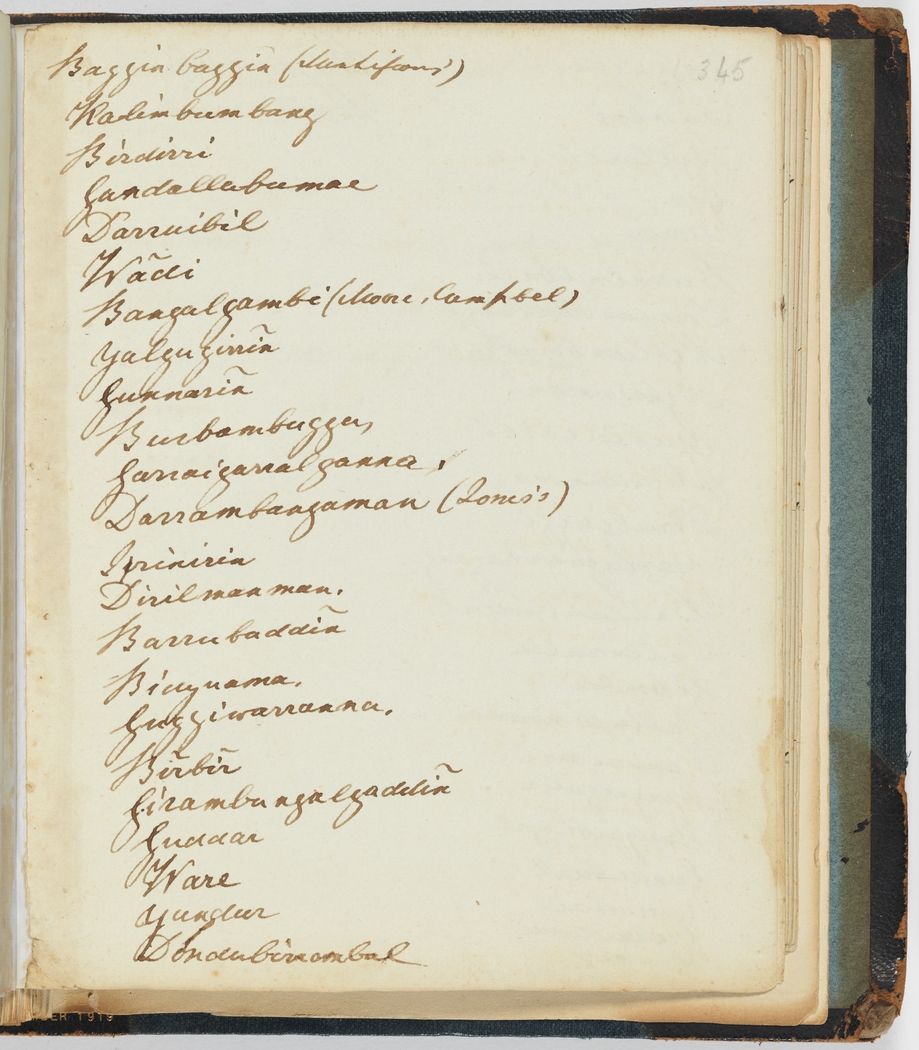 345
Baggin baggin̄
Kalimbumbang
Birdirri
Gandallabumae
Darruibil
Wādi
Bangalgambi (Moore, Campbel)
Yalgugirrin̄
Gunnarin̄
Burbambugga,
Garraigarralganna.
Darrambangaman (Jones's)
Dirilmanman.
Barrubaddin̄
Guggiwarranna.
Bir̄bir̄
Girambungalgaddin̄
Guddar
Ware
Yungur
Dondubirrombal